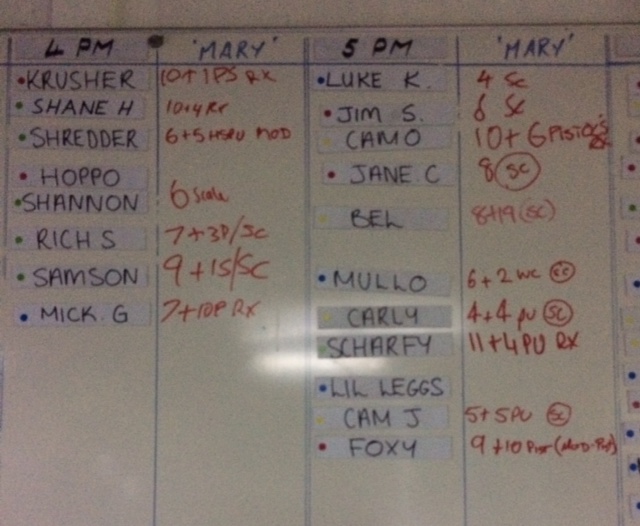 4 PM 'MARY' 5 PM 'MARY'
KRUSHER 10+1PS RX LUKE K. 4 SC
SHANE H 10+4 RX JIM S. 6 SC
SHREDDER 6+5 HSPU MOD CAMO 10+6 PISTOLS RX
HOPPO JANE.C 8 SC
SHANNON 6 Scale BEL 8+19 SC
RICH S 7+3P/SC
SAMSON 9+15/SC MULLO 6+2 WC SC
MICK.G 7+10P RX CARLY 4+4 PU SC
SCHARFY 11+4 PU RX
LIL LEGGS
CAM J 5+5PU SC
FOXY 9+10